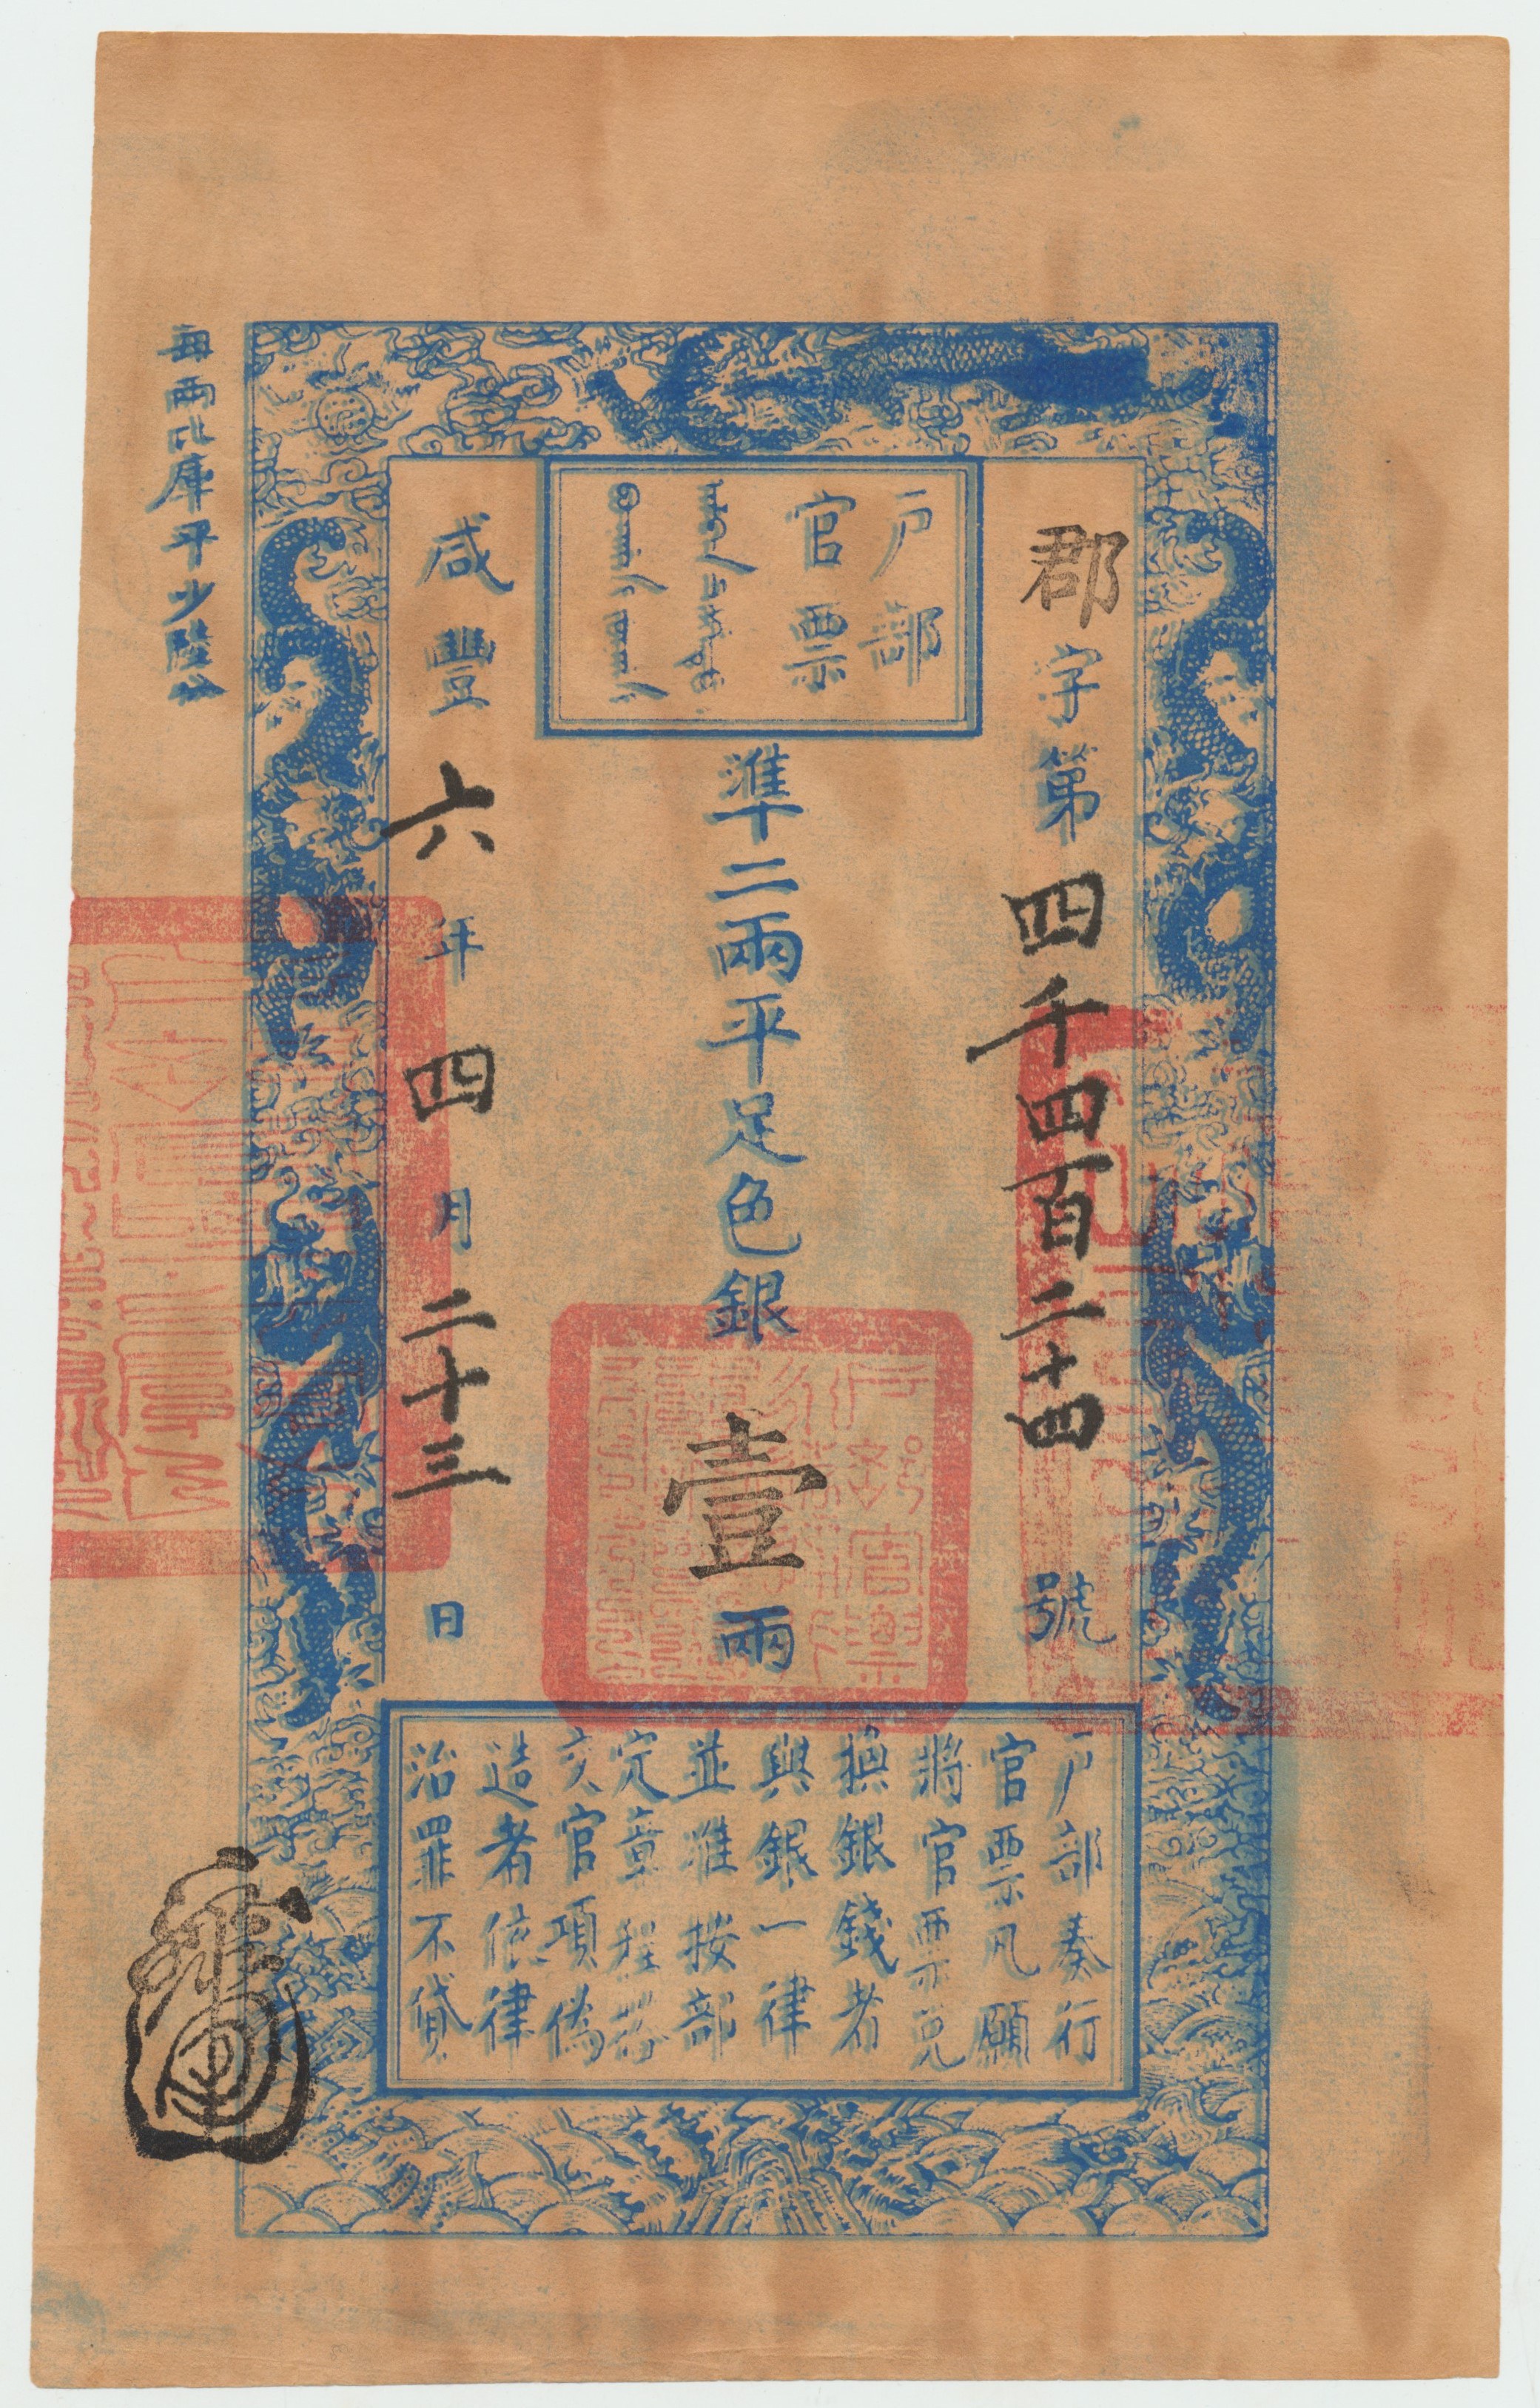 户部
官票
郡字第四千四百二十四號
準二兩平足色銀壹兩
咸豐六年四月二十三日
每兩比庫平少陸分
户部奏行
官票凡願
將官票兌
換銀錢者
與銀一律
並准按部
定章程搭
交官項偽
造者依律
治罪不貸